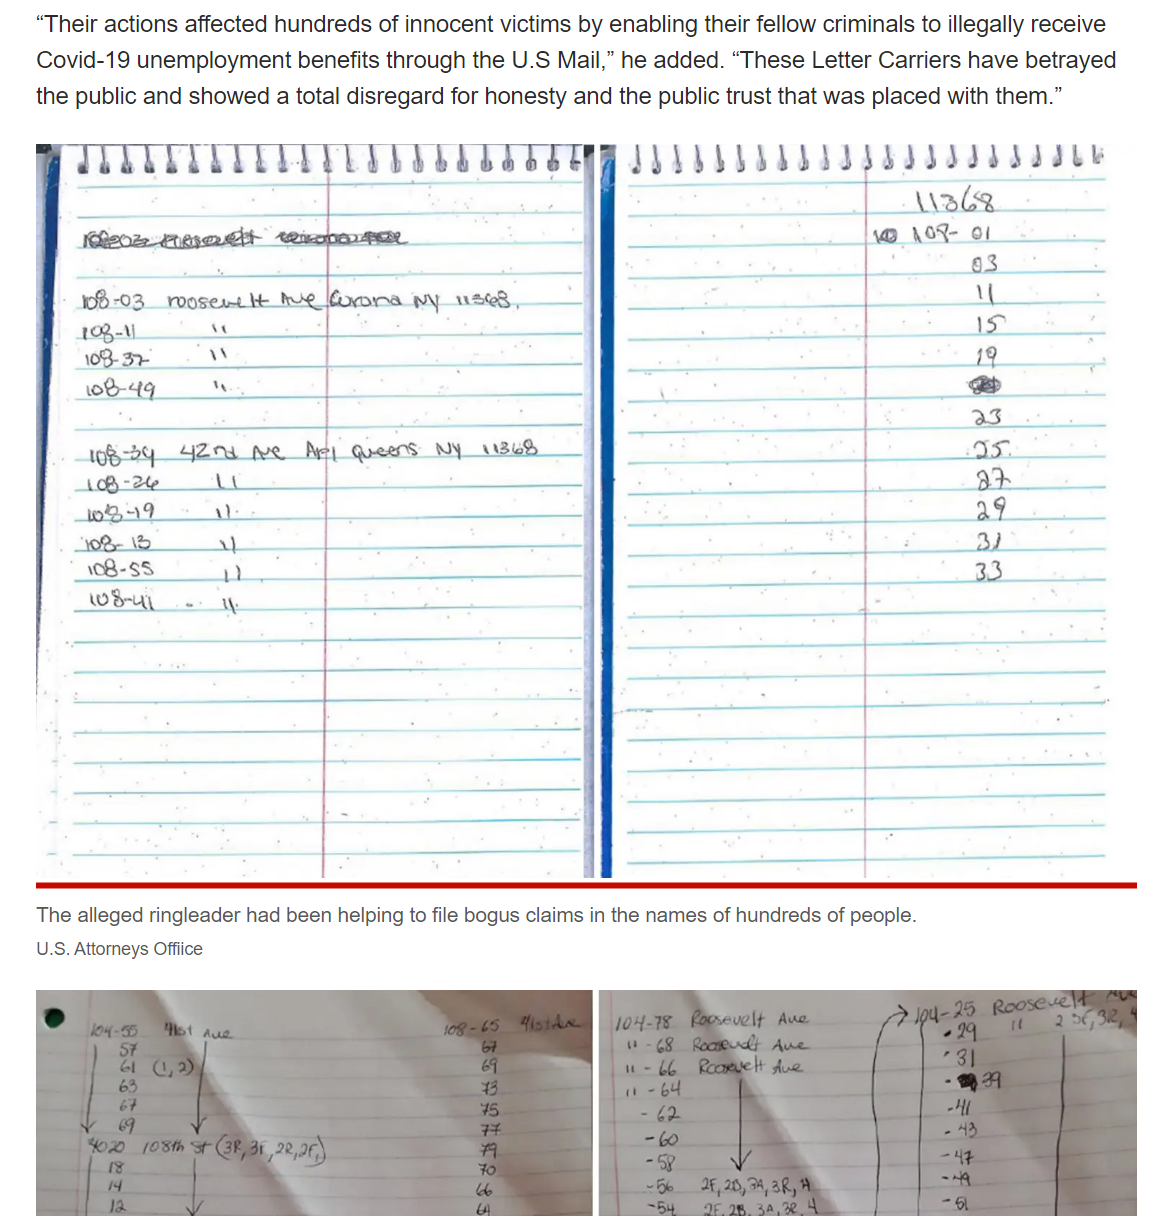 “Their actions affected hundreds of innocent victims by enabling their fellow criminals to illegally receive
Covid-19 unemployment benefits through the U.S Mail,” he added. “These Letter Carriers have betrayed
the public and showed a total disregard for honesty and the public trust that was placed with them.”
108-03 roosevelt Ave Corona NY 11368.
108-11 "
108-37 "
108-49 "
108-39 42nd Ave Apt Queens NY 11368
108-26 "
108-19 "
108-13 "
108-55 "
108-41 "
11368
108-01
03
11
15
19
23
25
27
29
31
33
The alleged ringleader had been helping to file bogus claims in the names of hundreds of people.
U.S. Attorneys Offiice
104-55 41st Ave
57
61 (1,2)
63
67
69
4020 108th St (3R, 3F, 2R, 2F)
18
14
12
108-65 41st Ave
67
69
73
75
77
79
70
66
64
104-78 Roosevelt Ave
" -68 Roosevelt Ave
" -66 Roosevelt Ave
" -64
-62
-60
-58
-56 2F, 2B, 3A, 3R, 4
-54 2F, 2B, 3A, 3R, 4
104-25 Roosevelt Ave
-29 "
-31
-39
-41
-43
-47
-49
-51